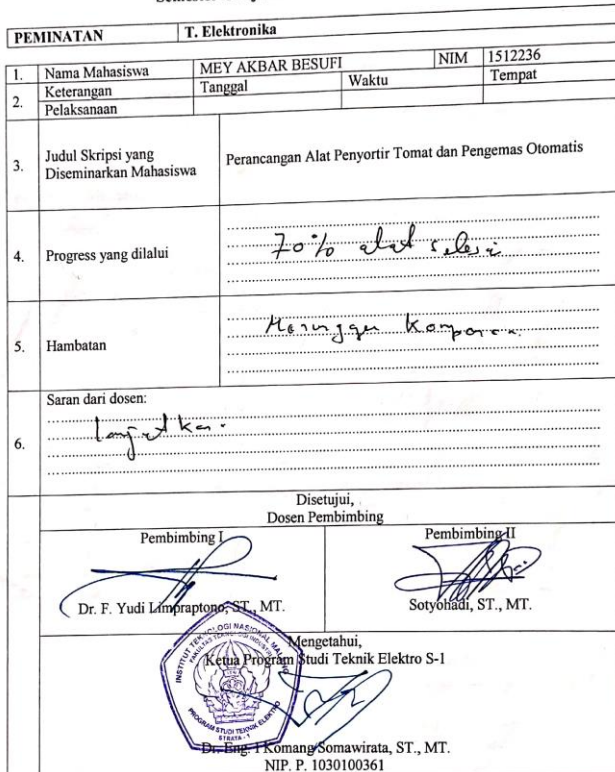 PEMINATAN T. Elektronika
1. Nama Mahasiswa MEY AKBAR BESUFI NIM 1512236
2. Keterangan Pelaksanaan Tanggal Waktu Tempat
3. Judul Skripsi yang Diseminarkan Mahasiswa Perancangan Alat Penyortir Tomat dan Pengemas Otomatis
4. Progress yang dilalui 70% alat selesai
5. Hambatan Menunggu Komponen
6. Saran dari dosen:
Lanjutkan.
Disetujui,
Dosen Pembimbing
Pembimbing I Pembimbing II
Dr. F. Yudi Limpraptono, ST., MT. Sotyohadi, ST., MT.
Mengetahui,
Ketua Program Studi Teknik Elektro S-1
INSTITUT TEKNOLOGI NASIONAL MALANG
FAKULTAS TEKNOLOGI INDUSTRI
PROGRAM STUDI TEKNIK ELEKTRO
STRATA - 1
Dr. Eng. I Komang Somawirata, ST., MT.
NIP. P. 1030100361